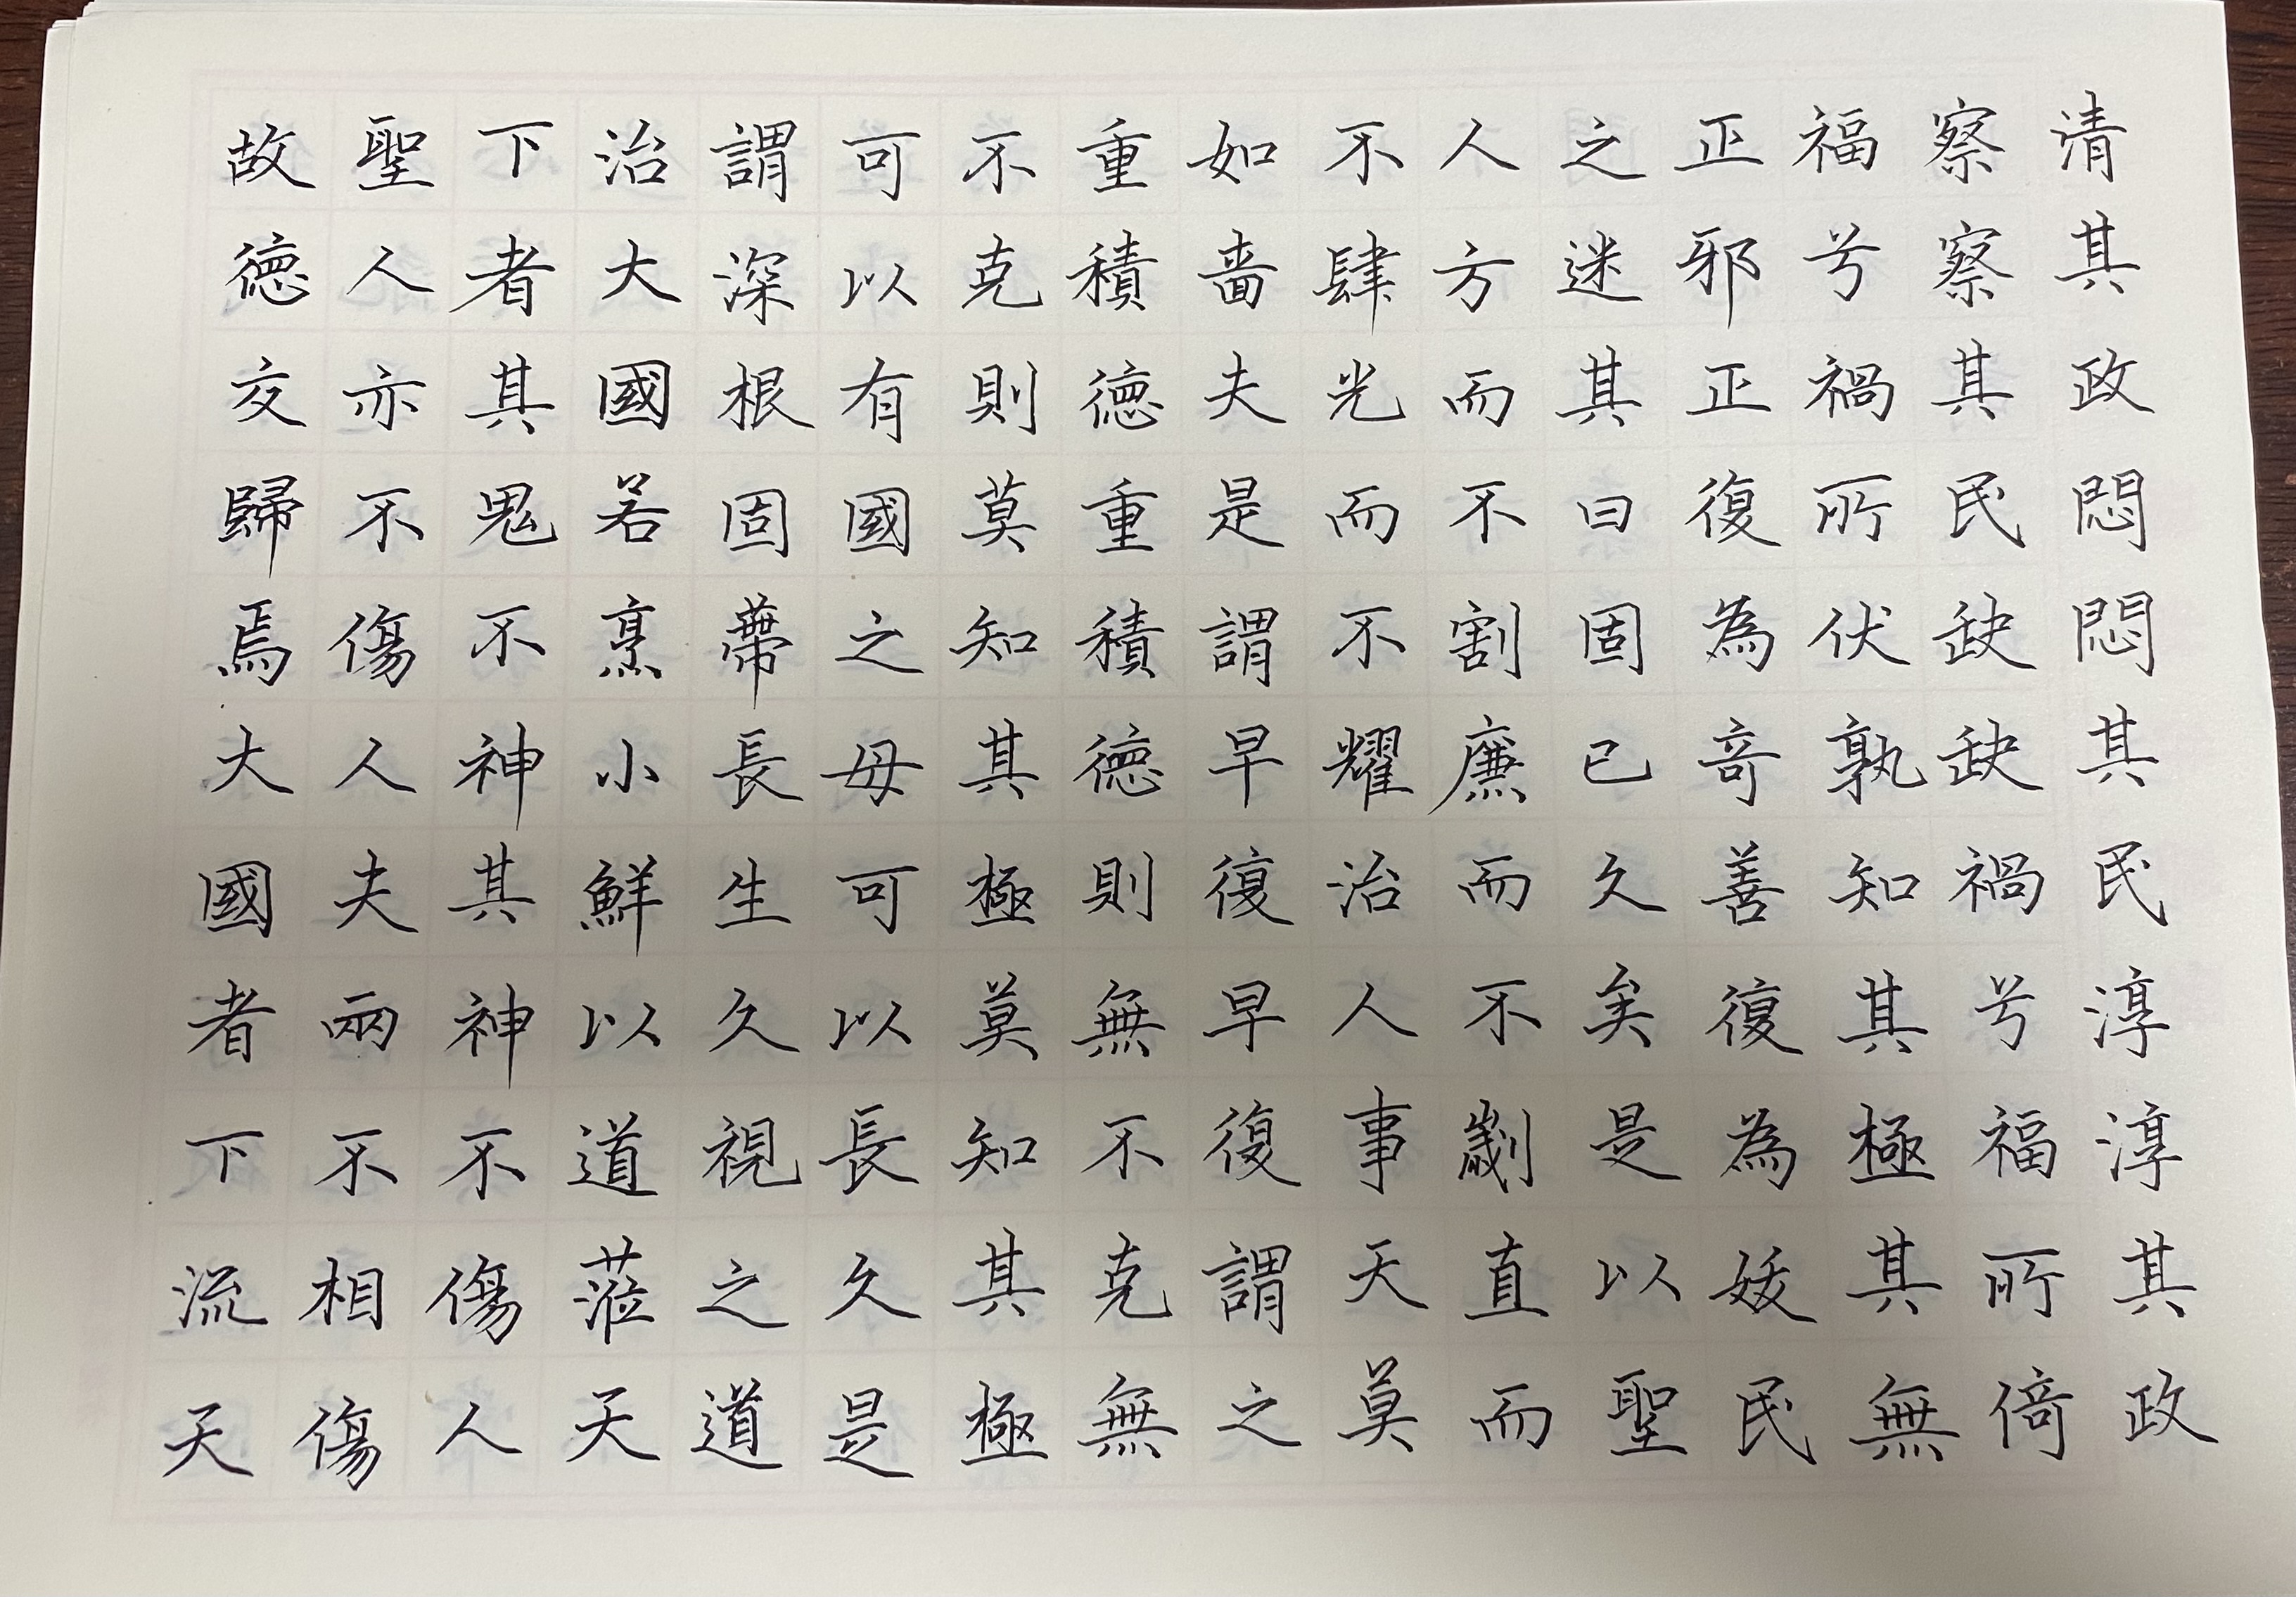 清其政悶悶其民淳淳其政
察察其民缺缺禍兮福所倚
福兮禍所伏孰知其極其無
正邪正復為奇善復為妖民
之迷其日固已久矣是以聖
人方而不割廉而不劌直而
不肆光而不耀治人事天莫
如嗇夫是謂早復早復謂之
重積德重積德則無不克無
不克則莫知其極莫知其極
可以有國國之母可以長久是
謂深根固蒂長生久視之道
治大國若烹小鮮以道蒞天
下者其鬼不神其神不傷人
聖人亦不傷人夫兩不相傷
故德交歸焉大國者下流天